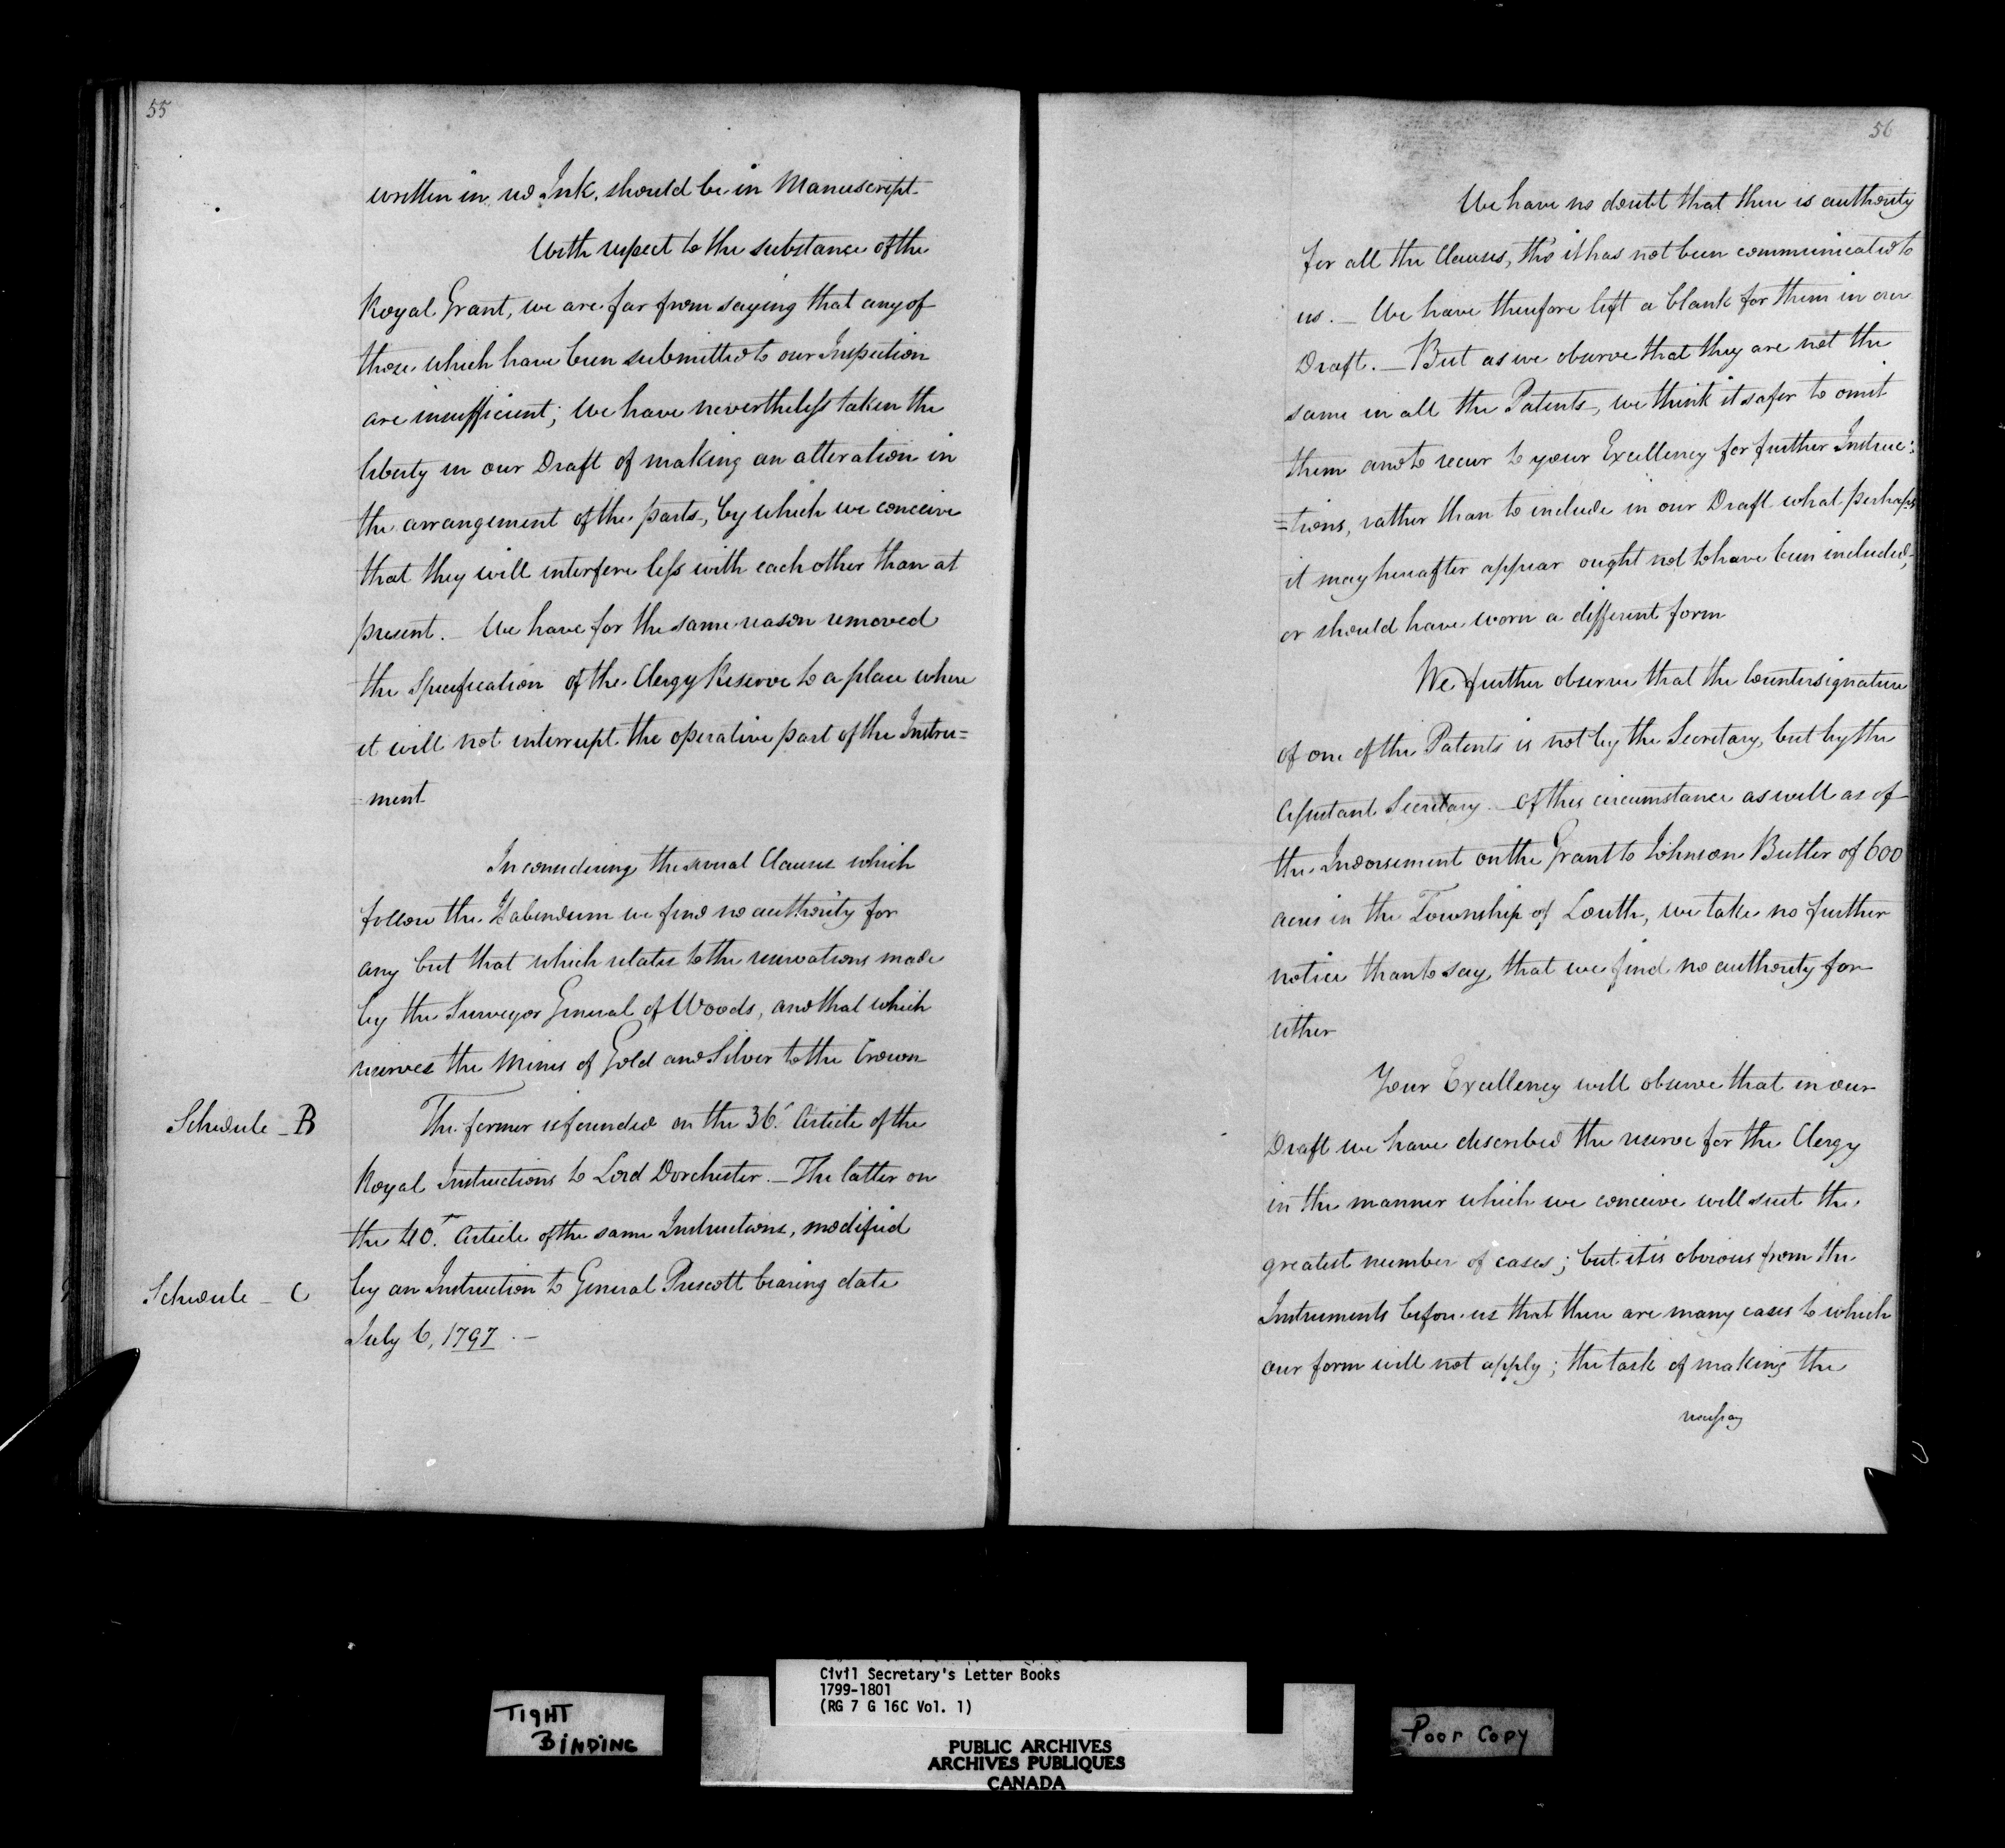 55
written in red Ink, should be in Manuscript.
With respect to the substance of the
Royal Grant, we are far from saying that any of
those which have been submitted to our Inspection
are insufficient; We have nevertheless taken the
liberty in our Draft of making an alteration in
the arrangement of the parts, by which we conceive
that they will interfere less with each other than at
present. — We have for the same reason removed
the Specification of the Clergy Reserve to a place where
it will not interrupt the operative part of the Instru=
=ment
In considering the several Clauses which
follow the Habendum we find no authority for
any but that which relates to the reservations made
by the Surveyor General of Woods, and that which
reserves the Mines of Gold and Silver to the Crown
Schedule _ B
The former is founded on the 36.' Article of the
Royal Instructions to Lord Dorchester. — The latter on
the 40.T Article of the same Instructions, modified
Schedule _ C
by an Instruction to General Prescott bearing date
July 6, 1797. —
56
We have no doubt that there is authority
for all the Clauses, tho' it has not been communicated to
us. — We have therefore left a blank for them in our
Draft. — But as we observe that they are not the
same in all the Patents, we think it safer to omit
them and to recur to your Excellency for further Instruc:
=tions, rather than to include in our Draft what perhaps
it may hereafter appear ought not to have been included,
or should have worn a different form
We further observe that the Countersignature
of one of the Patents is not by the Secretary, but by the
Assistant Secretary. — Of this circumstance as well as of
the Indorsement on the Grant to Johnson Butler of 600
acres in the Township of Louth, we take no further
notice than to say, that we find no authority for
either
Your Excellency will observe that in our
Draft we have described the reserve for the Clergy
in the manner which we conceive will suit the
greatest number of cases; but it is obvious from the
Instruments before us that there are many cases to which
our form will not apply; the task of making the
necessary
TIGHT
BINDING
Civil Secretary's Letter Books
1799-1801
(RG 7 G 16C Vol. 1)
PUBLIC ARCHIVES
ARCHIVES PUBLIQUES
CANADA
Poor Copy